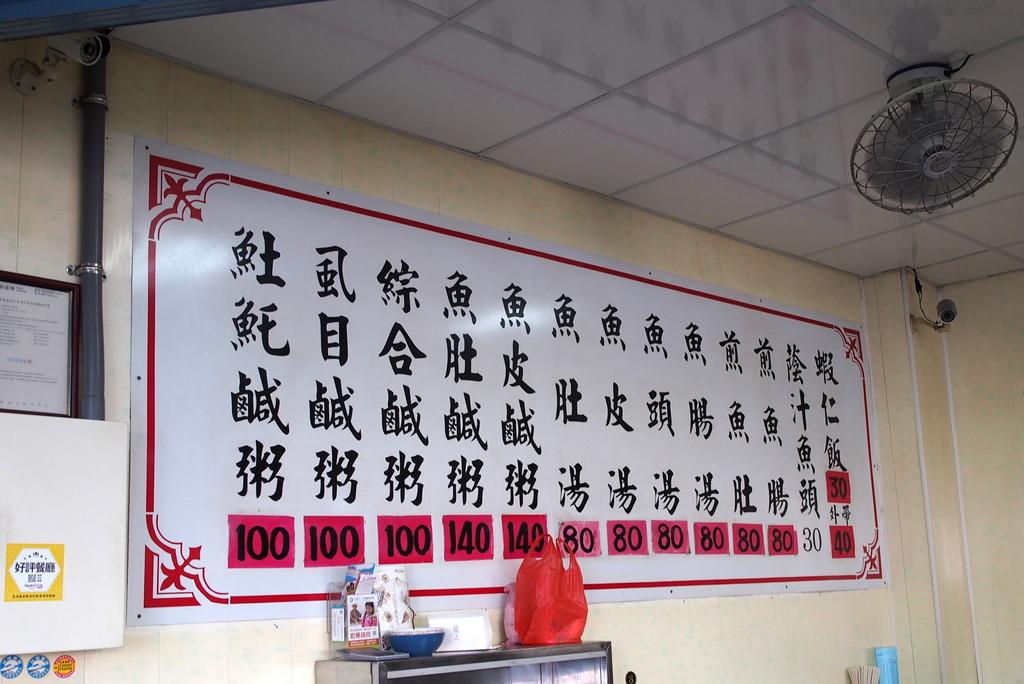 魠魠鹹粥 100
虱目鹹粥 100
綜合鹹粥 100
魚肚鹹粥 140
魚皮鹹粥 140
魚肚湯 80
魚皮湯 80
魚頭湯 80
魚腸湯 80
煎魚肚 80
煎魚腸 80
蔭汁魚頭 30
蝦仁飯 30
外帶 40
好評餐廳